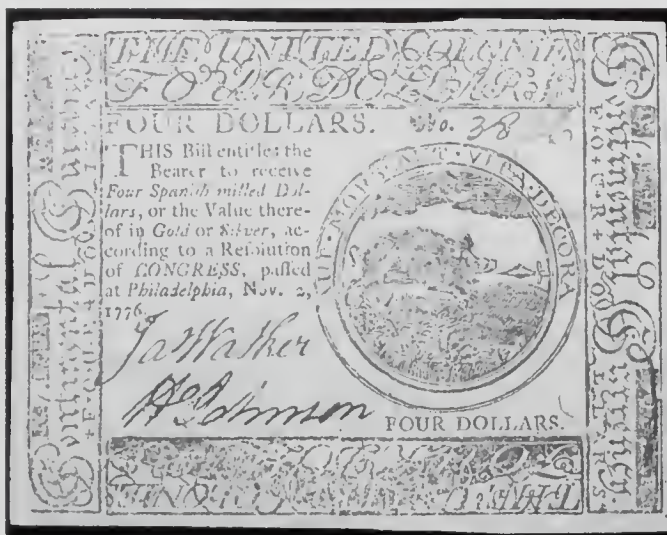 THE UNITED COLONIES
FOUR DOLLARS.
FOUR DOLLARS. No. 38
THIS Bill entitles the
Bearer to receive
Four Spanish milled Dol-
lars, or the Value there-
of in Gold or Silver, ac-
cording to a Resolution
of CONGRESS, passed
at Philadelphia, Nov. 2,
1776.
AUT MORS AUT VITA DECORA
Ja Walker
H Johnson
FOUR DOLLARS.
Continental Currency
FOUR DOLLARS
Continental Currency
FOUR DOLLARS